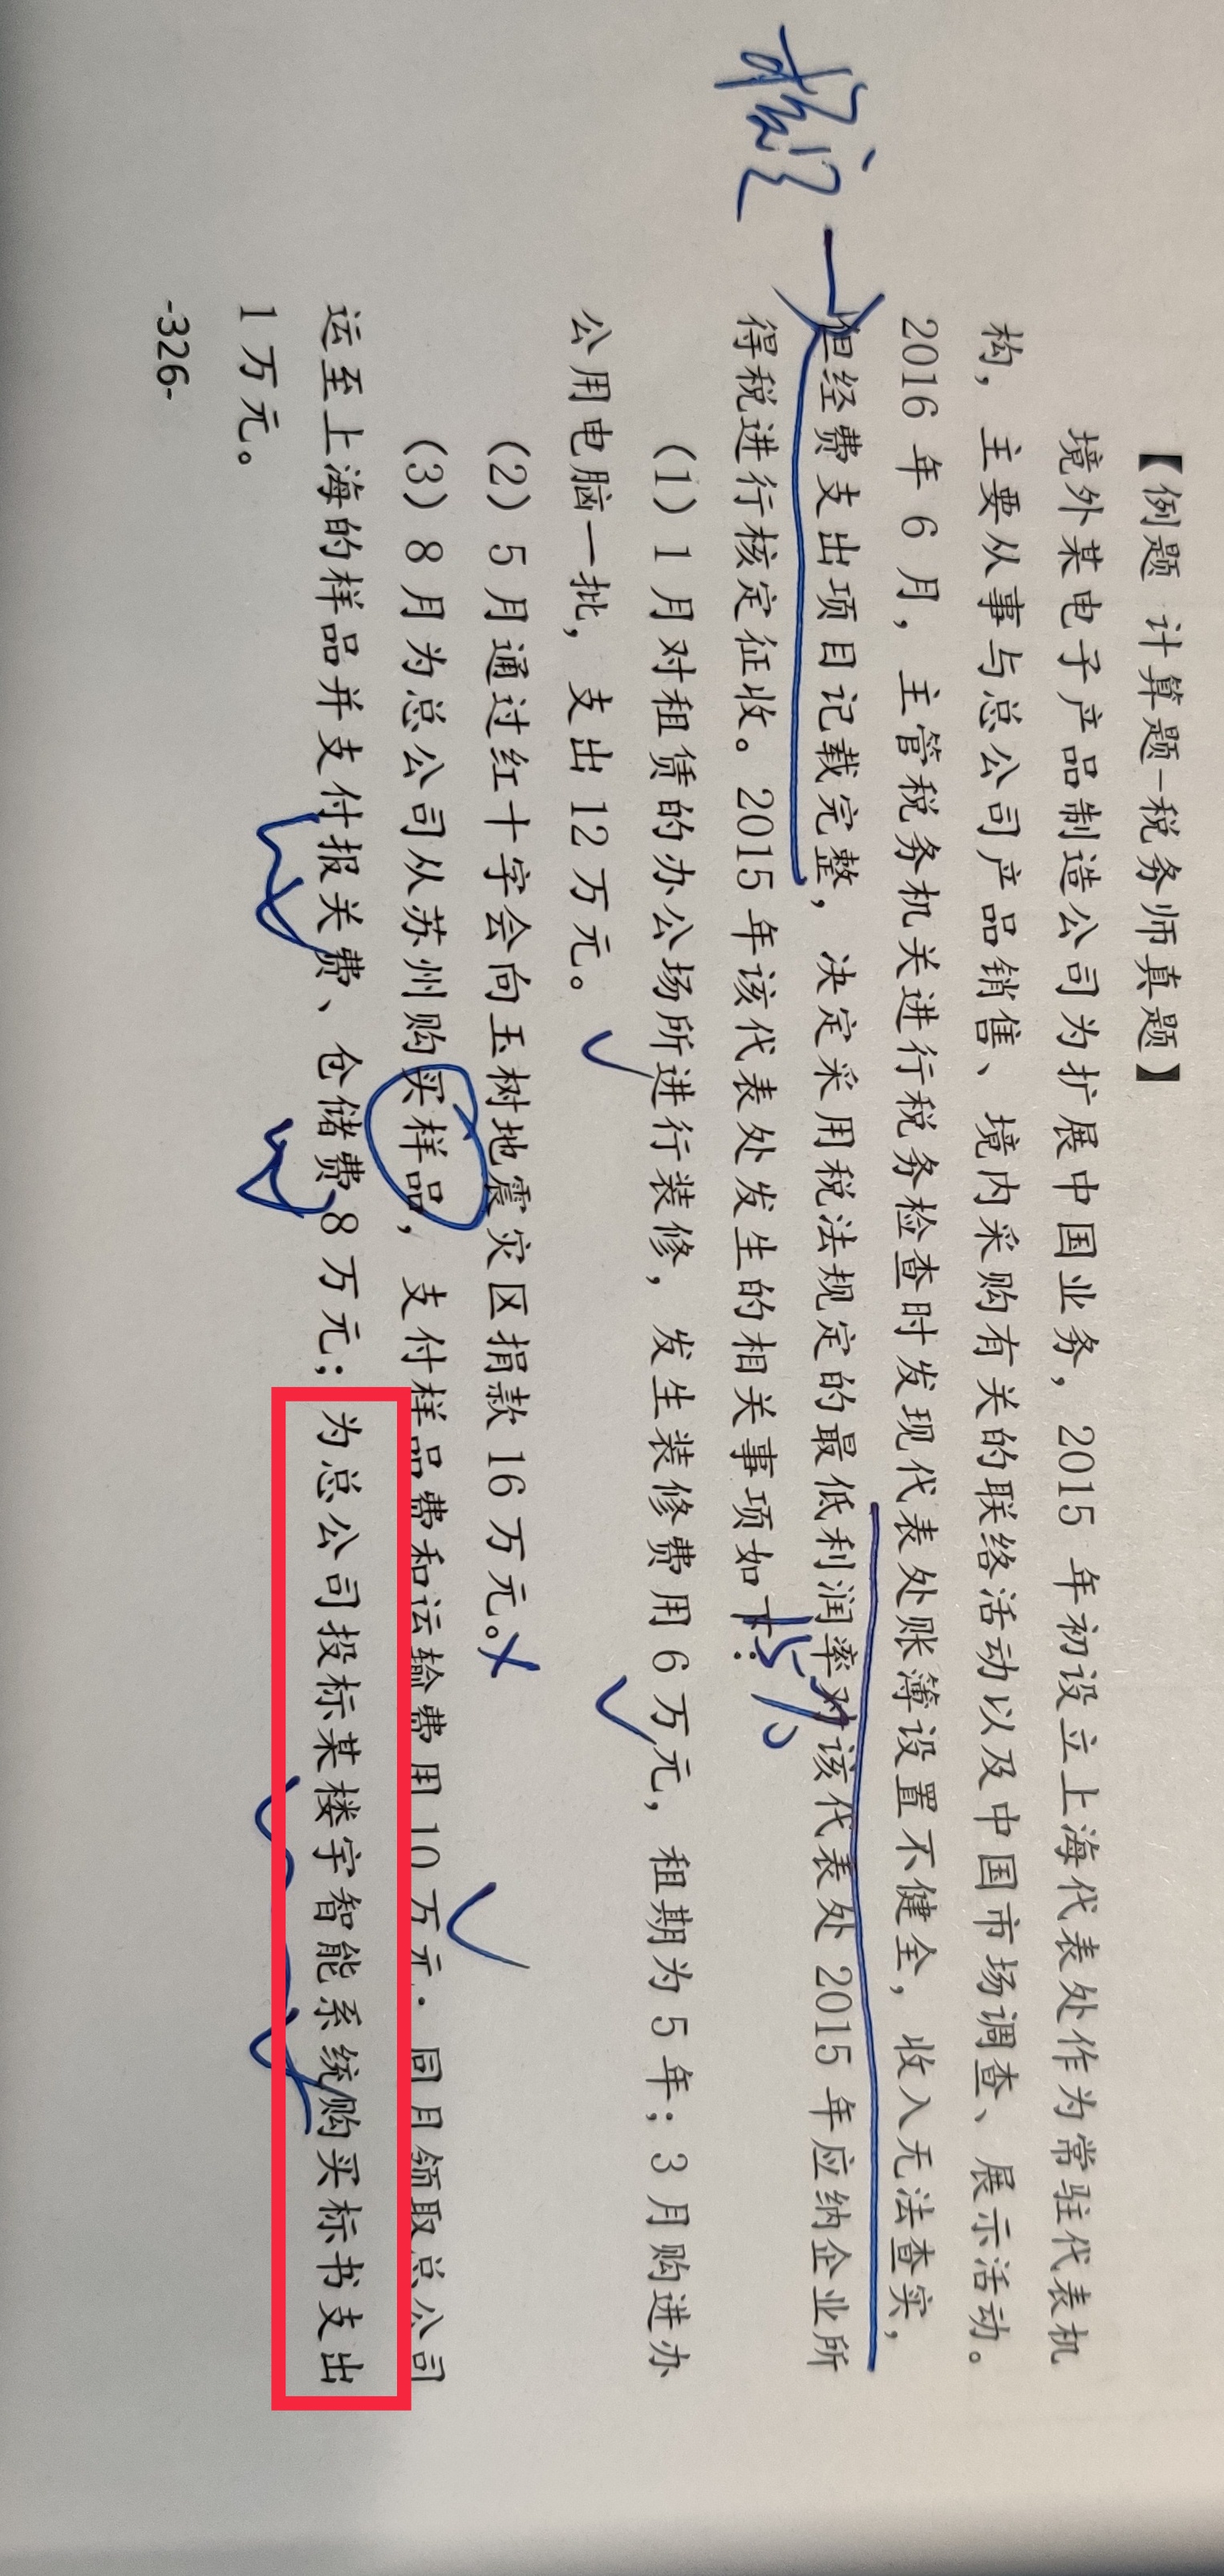 【例题 计算题-税务师真题】
境外某电子产品制造公司为扩展中国业务，2015 年初设立上海代表处作为常驻代表机
构，主要从事与总公司产品销售、境内采购有关的联络活动以及中国市场调查、展示活动。
2016 年 6 月，主管税务机关进行税务检查时发现代表处账簿设置不健全，收入无法查实，
核定
但经费支出项目记载完整，决定采用税法规定的最低利润率对该代表处 2015 年应纳企业所
得税进行核定征收。2015 年该代表处发生的相关事项如下：
15%
（1）1 月对租赁的办公场所进行装修，发生装修费用 6 万元，租期为 5 年；3 月购进办
公用电脑一批，支出 12 万元。
（2）5 月通过红十字会向玉树地震灾区捐款 16 万元。
（3）8 月为总公司从苏州购买样品，支付样品费和运输费用 10 万元；同月领取总公司
运至上海的样品并支付报关费、仓储费 8 万元；为总公司投标某楼宇智能系统购买标书支出
1 万元。
-326-